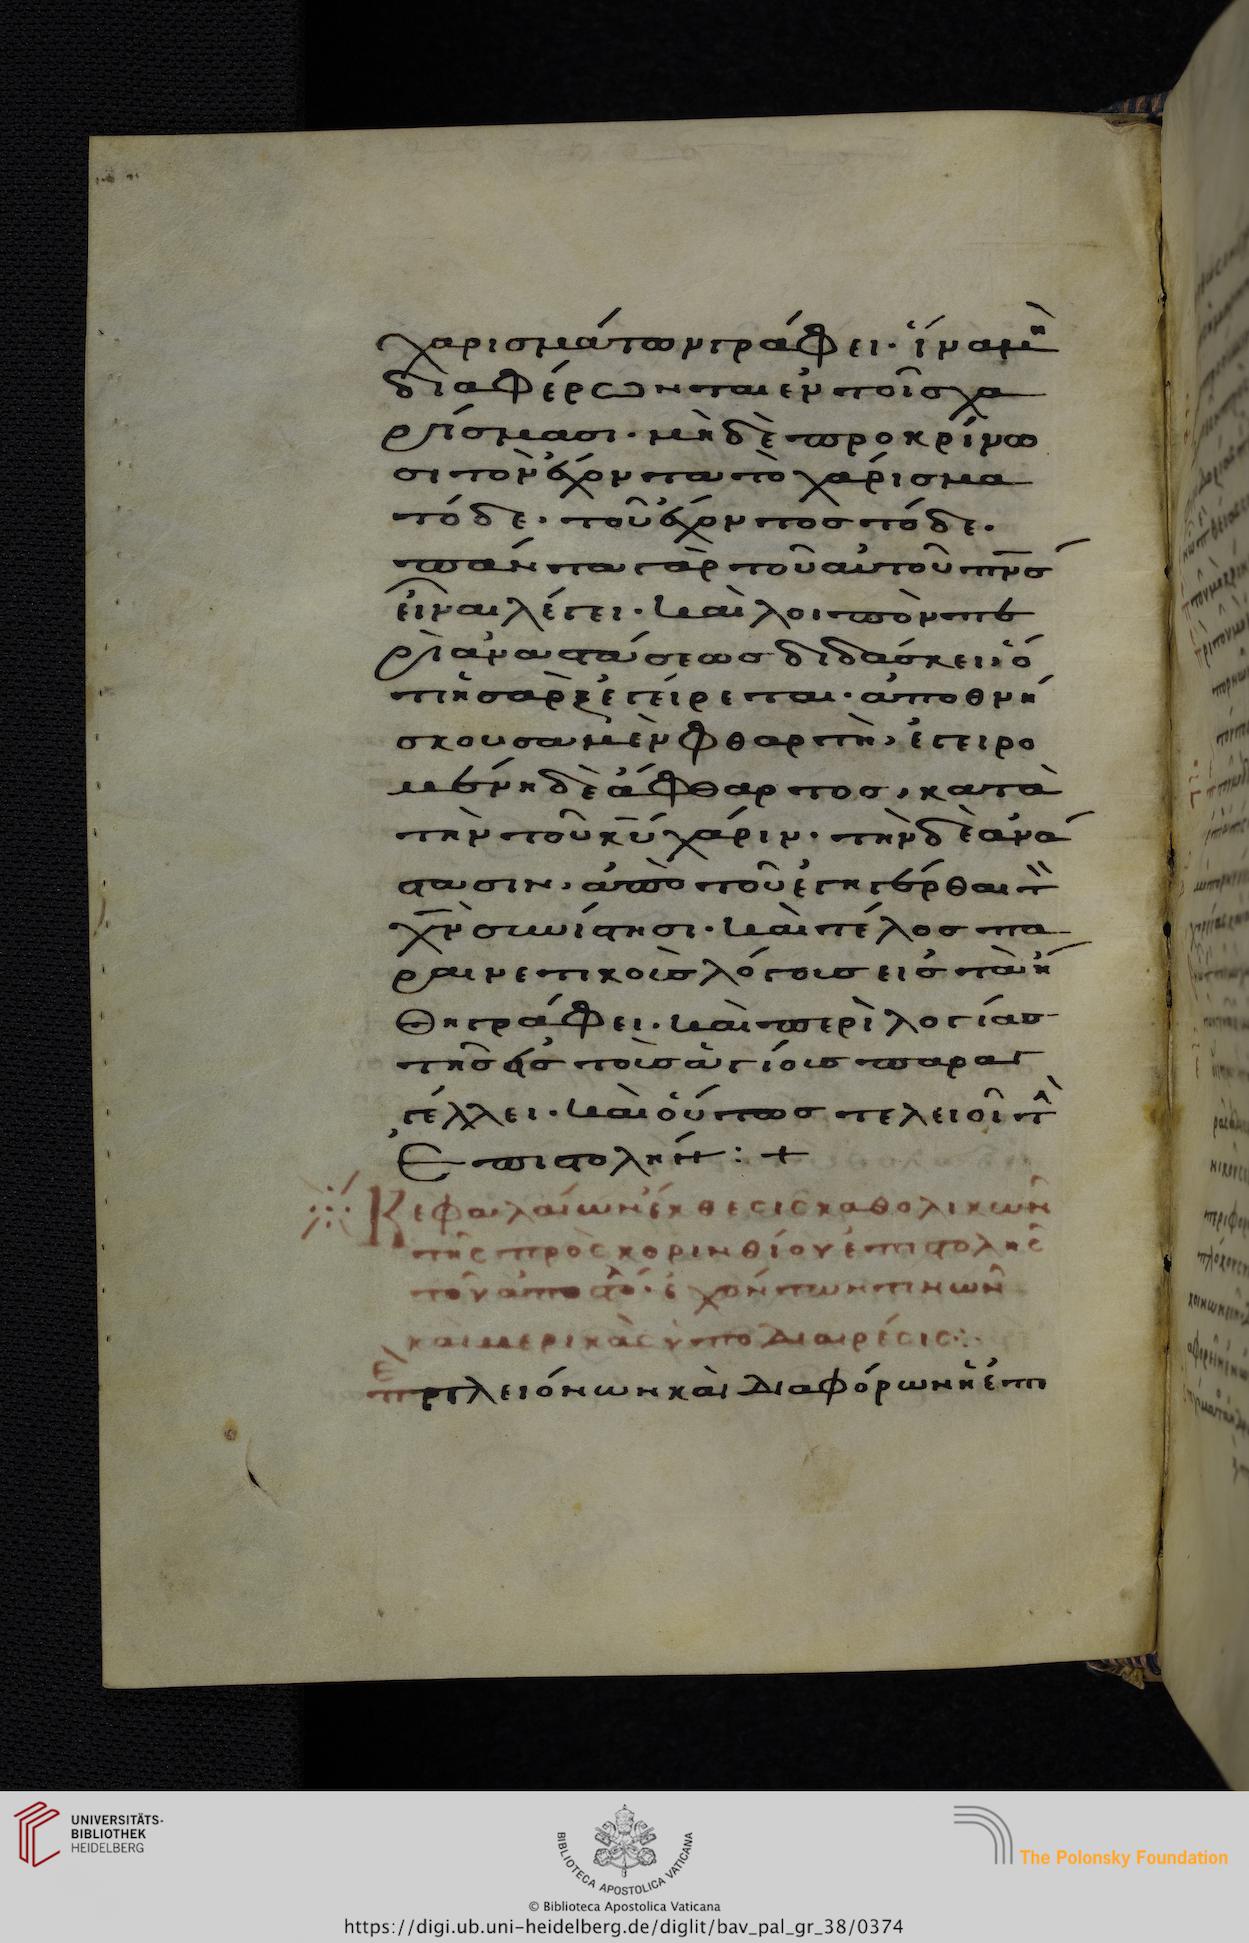 χαρισμάτων γράφει· ἵνα μὴ
διαφέρωνται ἐν τοῖς χα
ρίσμασι· μὴ δὲ προκρίνω
σι τὸν ἔχοντα τὸ χάρισμα
τόδε· τοῦ ἔχοντος τόδε·
πάντα γὰρ τοῦ αὐτοῦ πνσ
εἶναι λέγει· καὶ λοιπὸν πε
ρὶ ἀναστάσεως διδάσκει, ὅ
τι ἡ σὰρξ ἐγείρεται· ἀποθνή
σκουσα μὲν φθαρτὴ, ἐγειρο
μένη δὲ ἄφθαρτος, κατὰ
τὴν τοῦ κυ χάριν· τὴν δὲ ἀνά
στασιν, ἀπὸ τοῦ ἐγηγέρθαι τὸν
χν συνίστησι· καὶ τέλος πα
ραινετικοῖς λόγοις εἰς τὰ ἤ
θη γράφει· καὶ περὶ λογίας
τῆς εἰς τοὺς ἁγίους παραγ
γέλλει· καὶ οὕτως τελειοῖ τὴν
Ἐπιστολήν : +
Κεφαλαίων ἔκθεσις καθολικῶν
τῆς πρὸς κορινθίου ἐπιστολῆς
τοῦ ἀποστό· ἐχόντων τινῶν
καὶ μερικὰς ὑποδιαιρέσις :·
πλειόνων καὶ διαφόρων ἡ ἐπι
UNIVERSITÄTS-
BIBLIOTHEK
HEIDELBERG
BIBLIOTECA APOSTOLICA VATICANA
The Polonsky Foundation
© Biblioteca Apostolica Vaticana
https://digi.ub.uni-heidelberg.de/diglit/bav_pal_gr_38/0374